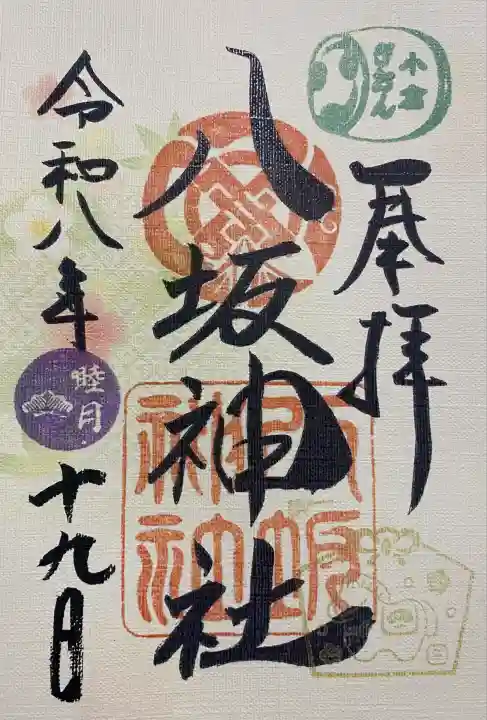 小倉
ぎおん
奉拝
八坂神社
八坂
神社
令和八年
睦月
十九日